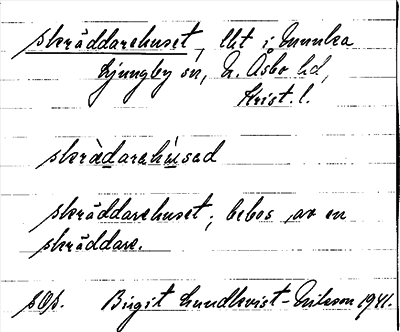 skräddarehuset, lht i Munka
Ljungby sn, N. Åsbo hd,
Krist. l.
skrädarehused
skräddarehuset; bebos av en
skräddare.
sOp. Birgit Lundkvist-Nilsson 1941.